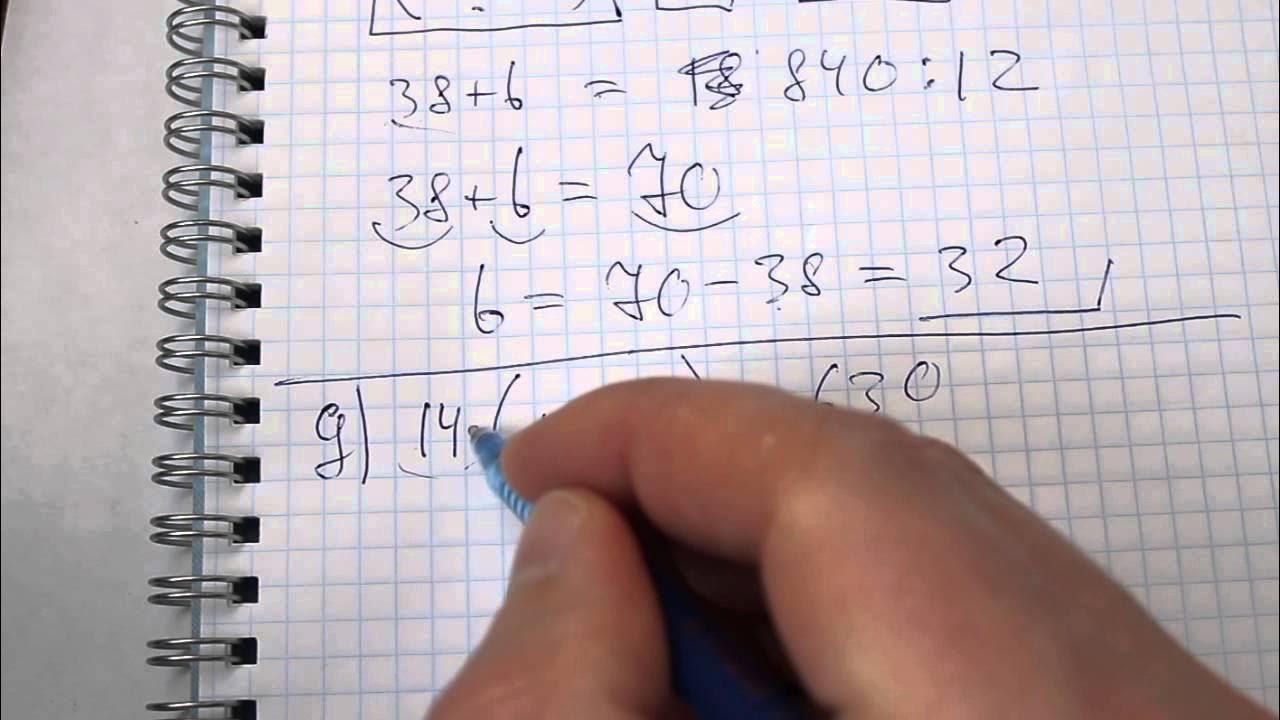 38+b = 840:12
38+b = 70
b = 70-38 = 32
g) 14 ( ) 630